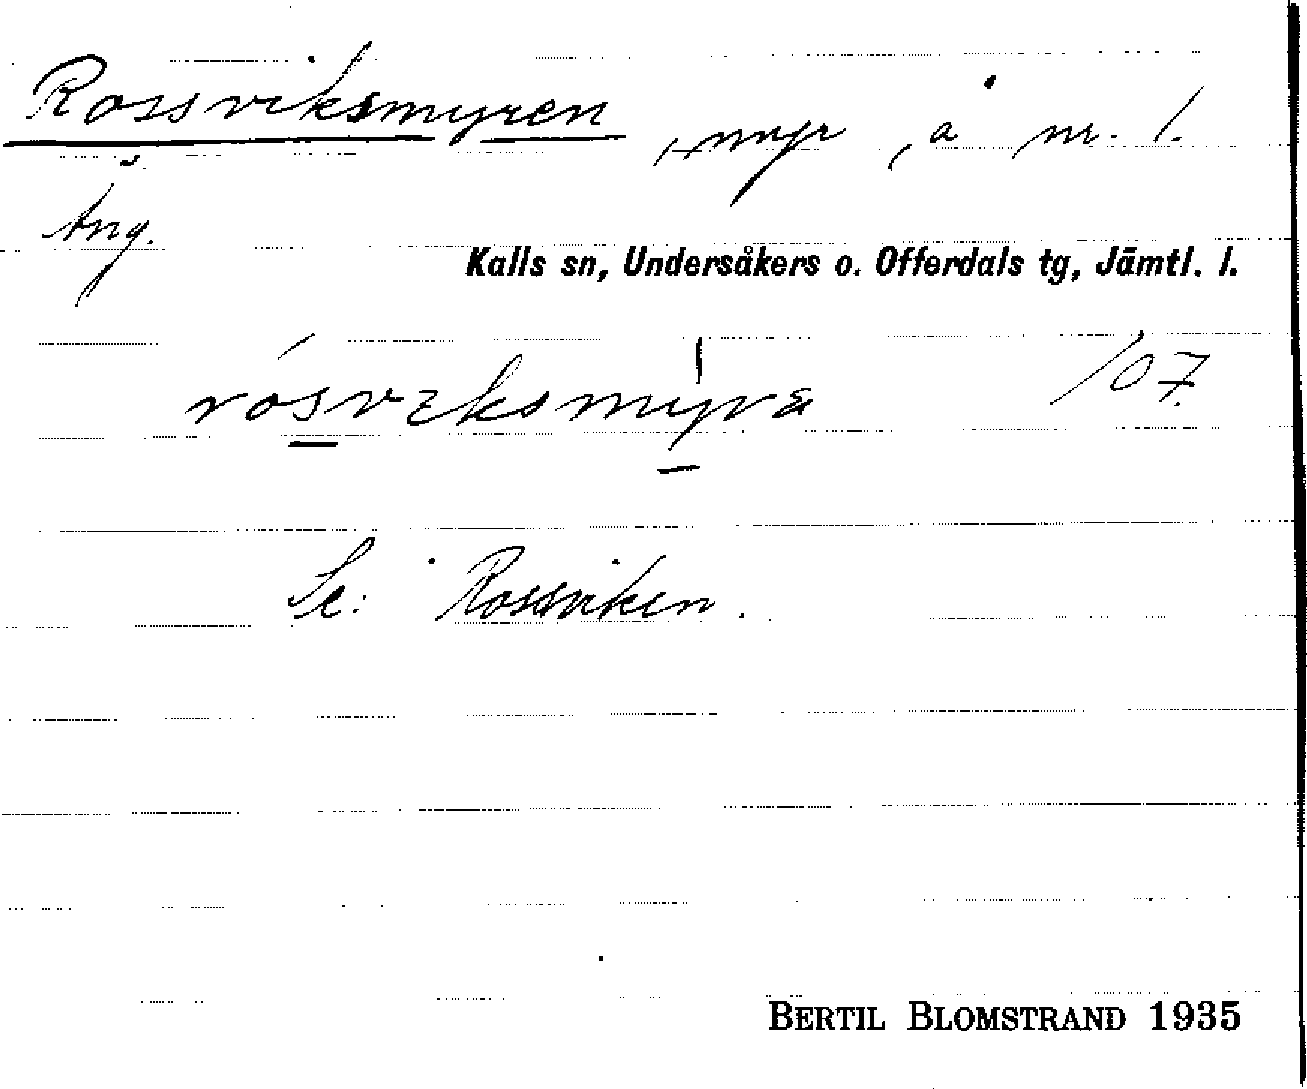 Rossviksmyren, myr, å nr. 1.
Äng.
Kalls sn, Undersåkers o. Offerdals tg, Jämtl. l.
rósviksmyra 107.
Se: Rossviken.
BERTIL BLOMSTRAND 1935